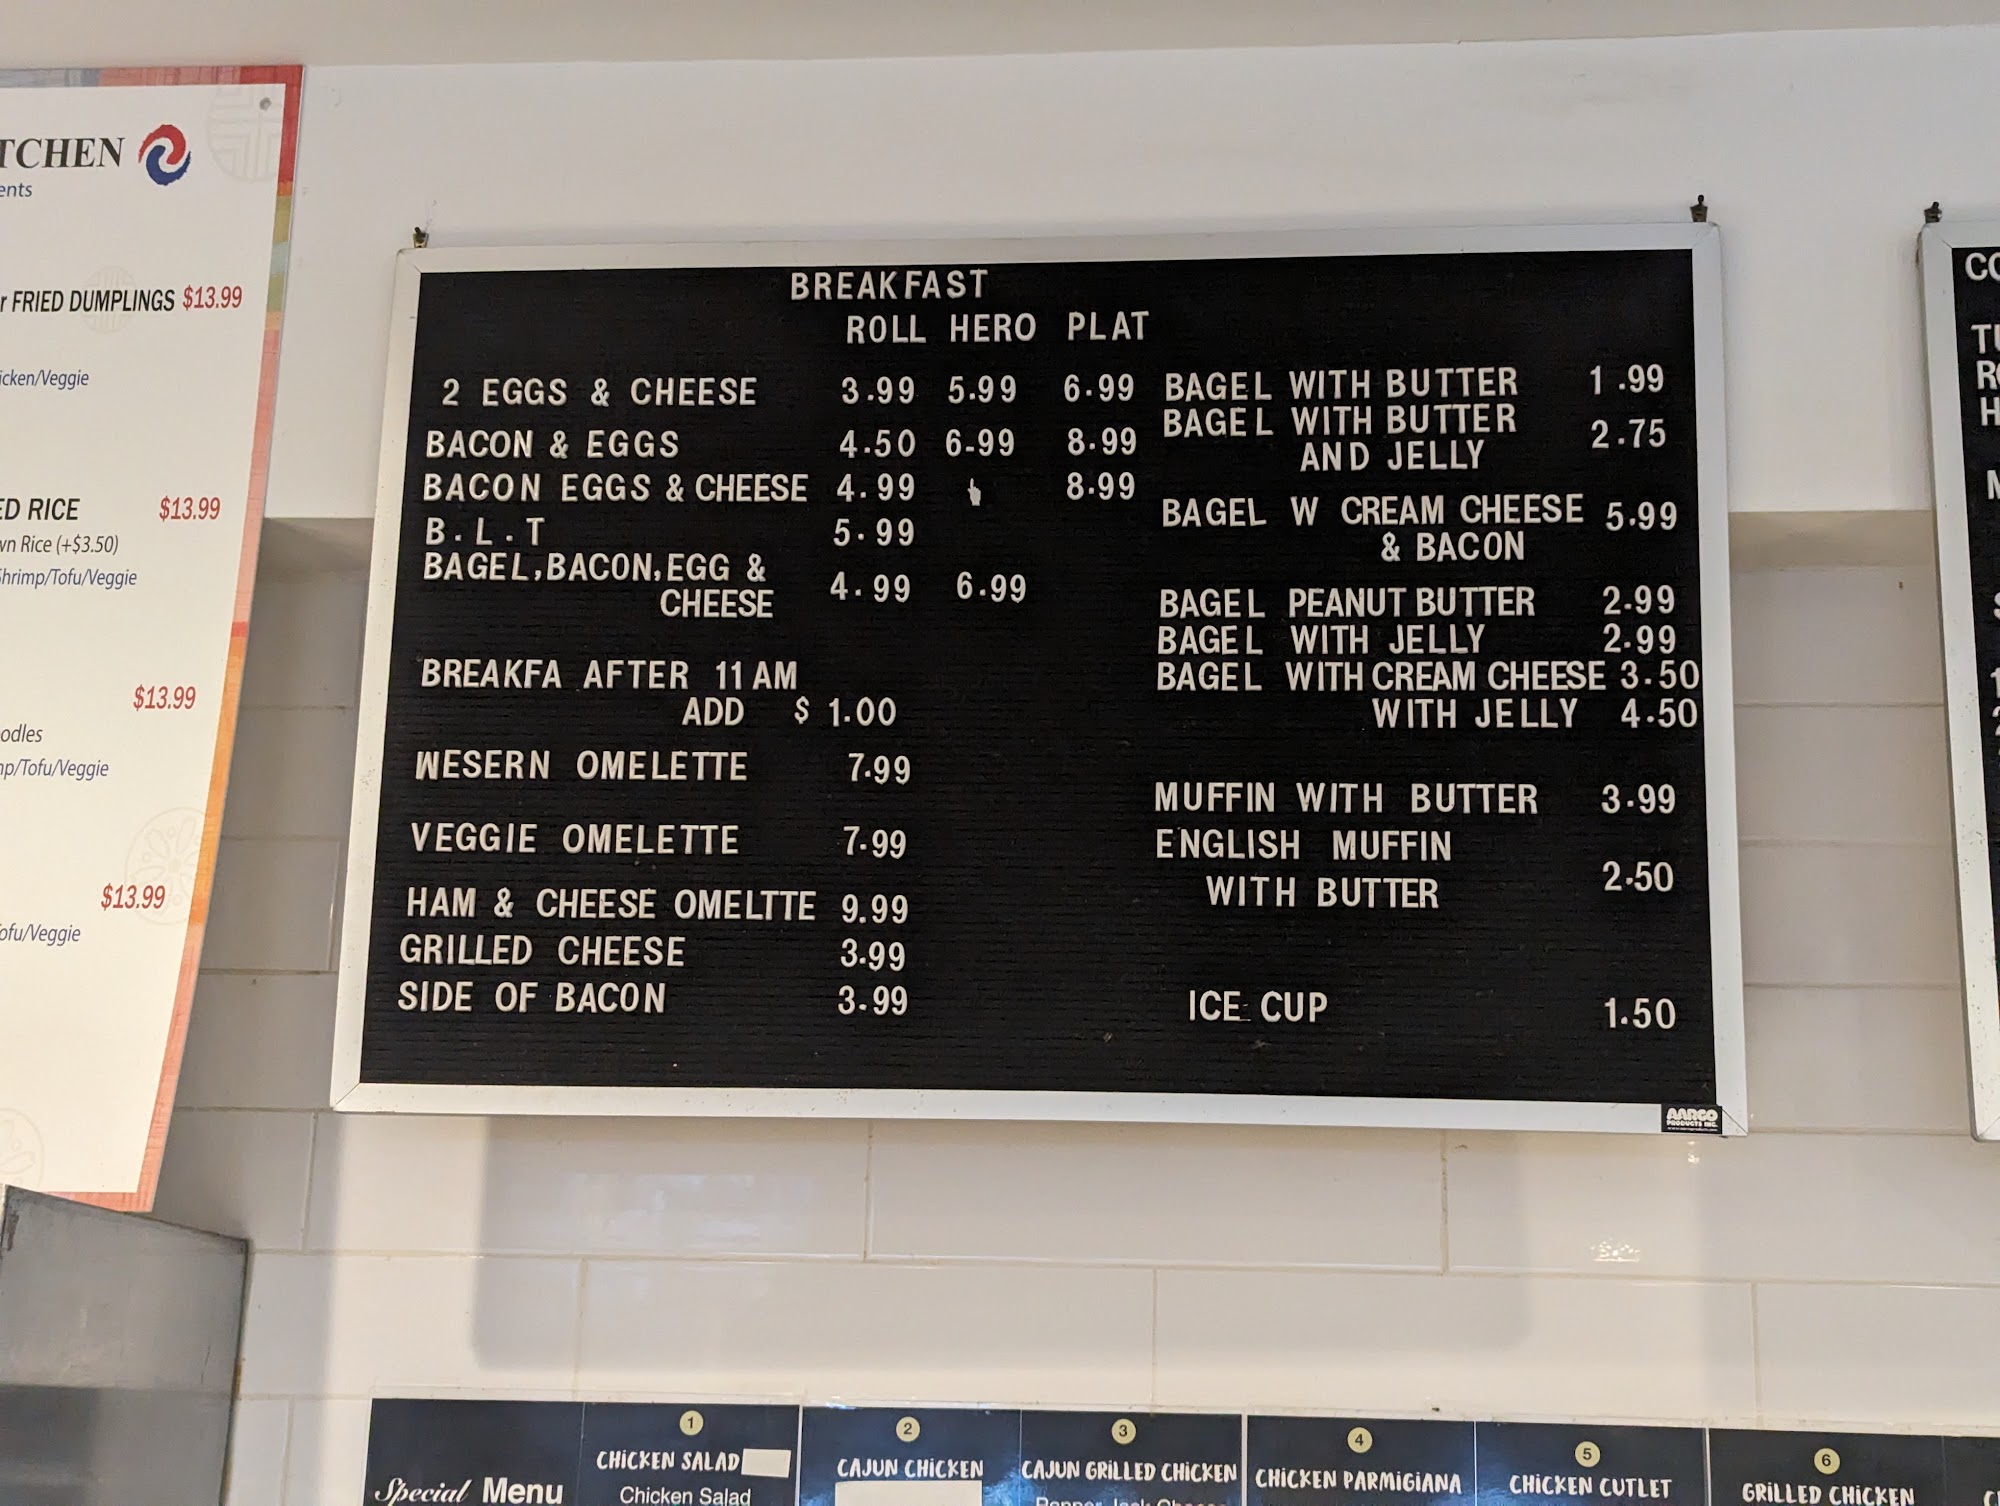 TCHEN
ents
r FRIED DUMPLINGS $13.99
icken/Veggie
ED RICE $13.99
wn Rice (+$3.50)
Shrimp/Tofu/Veggie
$13.99
odles
mp/Tofu/Veggie
$13.99
Tofu/Veggie
BREAKFAST
ROLL HERO PLAT
2 EGGS & CHEESE 3.99 5.99 6.99
BACON & EGGS 4.50 6.99 8.99
BACON EGGS & CHEESE 4.99 8.99
B.L.T 5.99
BAGEL, BACON, EGG &
CHEESE 4.99 6.99
BREAKFA AFTER 11 AM
ADD $ 1.00
WESERN OMELETTE 7.99
VEGGIE OMELETTE 7.99
HAM & CHEESE OMELTTE 9.99
GRILLED CHEESE 3.99
SIDE OF BACON 3.99
BAGEL WITH BUTTER 1.99
BAGEL WITH BUTTER
AND JELLY 2.75
BAGEL W CREAM CHEESE 5.99
& BACON
BAGEL PEANUT BUTTER 2.99
BAGEL WITH JELLY 2.99
BAGEL WITH CREAM CHEESE 3.50
WITH JELLY 4.50
MUFFIN WITH BUTTER 3.99
ENGLISH MUFFIN
WITH BUTTER 2.50
ICE CUP 1.50
AARCO
PRODUCTS INC.
CO
TU
RO
H
Special Menu
1
CHICKEN SALAD
Chicken Salad
2
CAJUN CHICKEN
3
CAJUN GRILLED CHICKEN
4
CHICKEN PARMIGIANA
5
CHICKEN CUTLET
6
GRILLED CHICKEN